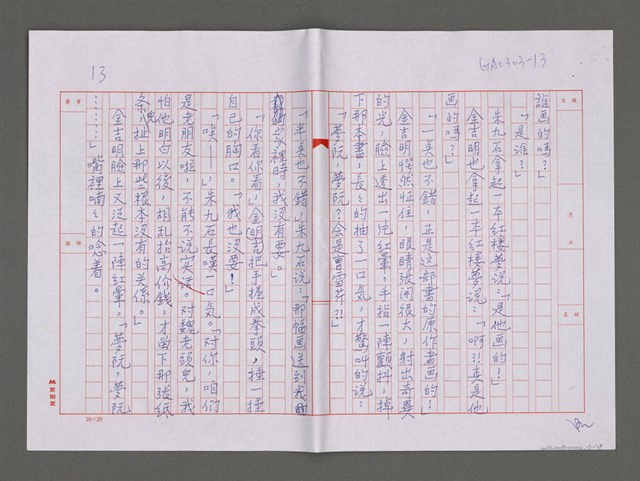 GA1303-13
13
誰画的嗎？」
「是誰？」
朱九石拿起一本紅樓夢說：「是他画的！」
金吉明也拿起一本紅樓夢說：「啊！！真是他
画的嗎？」
「一点也不錯，正是这部書的原作者画的！」
金吉明愕然怔住，眼睛張開很大，射出奇異
的光，臉上透出一片紅暈，手指一陣顫抖，掉
下那本書，長々的抽了一口気，才驚叫的說：
「夢阮，夢阮？会是曹雪芹？！」
「半点也不錯，」朱九石說：「那幅画送到我
家裡時，我沒有要。」
「你看你看，」金明吉把手握成拳頭，捶一捶
自己的胸口。「我也沒要！」
「唉——」朱九石長嘆一口気。「对你，咱们
是老朋友啦，不能不說实话。对魏老頭兒，我
怕他明白以後，胡乱抬高价錢，才留下那張紙
条兒，扯上那些根本沒有的关係。」
金吉明臉上又泛起一陣紅暈。「夢阮，夢阮
⋯⋯」嘴裡喃々的唸着。
20×20